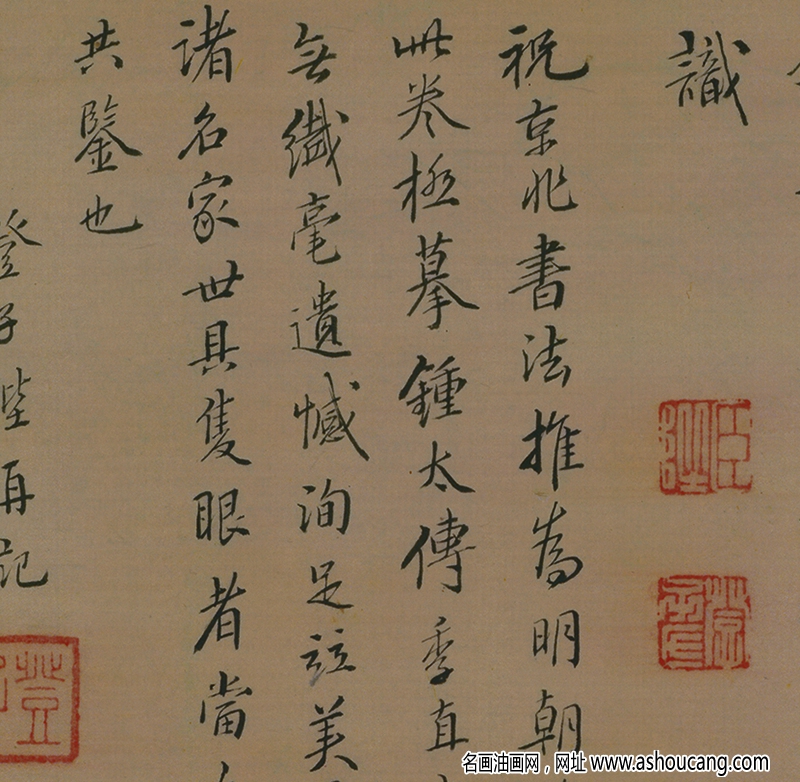 識
祝京兆書法推為明朝
此卷極摹鍾太傅季直
無纖毫遺憾洵足竝美
諸名家世具隻眼者當
共鑒也
登子陛再記
名画油画网，网址 www.ashoucang.com